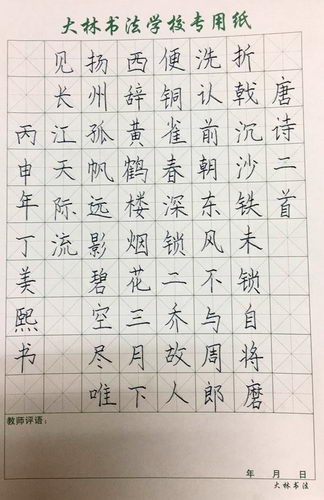 大林书法学校专用纸
唐诗二首
折戟沉沙铁未锁自将磨
洗认前朝东风不与周郎
便铜雀春深锁二乔故人
西辞黄鹤楼烟花三月下
扬州孤帆远影碧空尽唯
见长江天际流
丙申年丁美熙书
教师评语：
年 月 日
大林书法